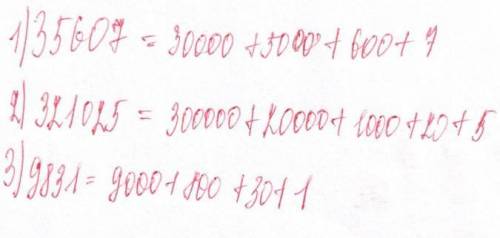 1) 35607 = 30000 + 5000 + 600 + 7
2) 321025 = 300000 + 20000 + 1000 + 20 + 5
3) 9831 = 9000 + 800 + 30 + 1